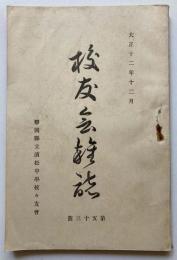 大正十二年十二月
校友会雑誌
第五十三號
靜岡縣立濱松中學校々友會